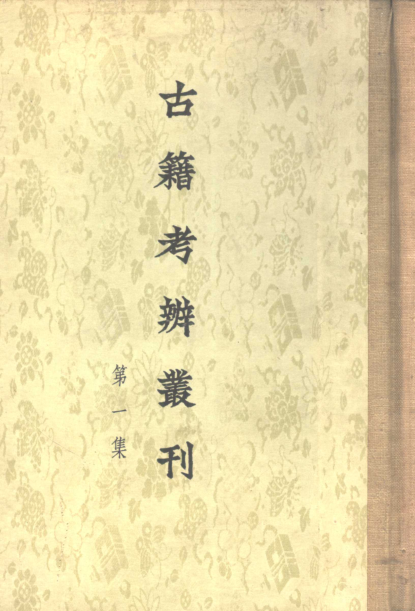 古籍考辨叢刊
第一集